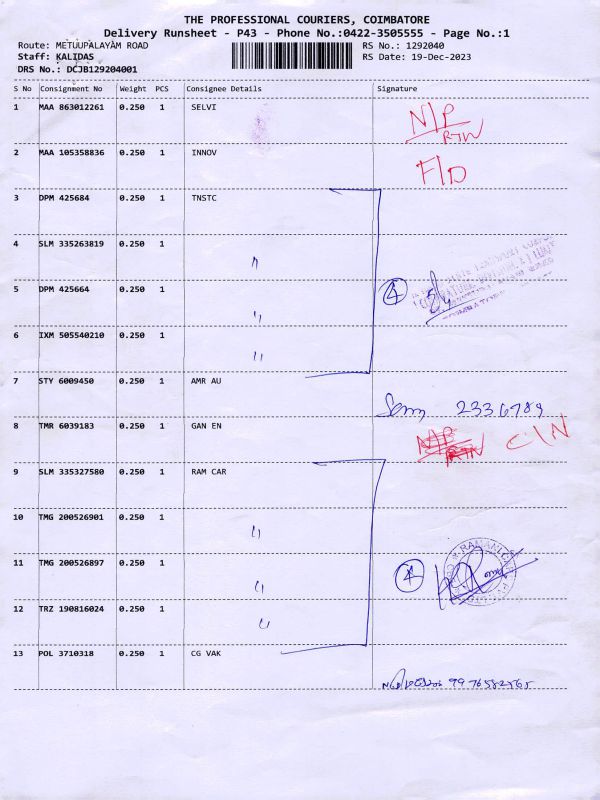 THE PROFESSIONAL COURIERS, COIMBATORE
Delivery Runsheet - P43 - Phone No.:0422-3505555 - Page No.:1
Route: METUUPALAYAM ROAD
RS No.: 1292040
Staff: KALIDAS
RS Date: 19-Dec-2023
DRS No.: DCJB129204001
S No Consignment No Weight PCS Consignee Details Signature
1 MAA 863012261 0.250 1 SELVI N/P
RTN
2 MAA 105358836 0.250 1 INNOV F/D
3 DPM 425684 0.250 1 TNSTC
4 SLM 335263819 0.250 1 "
5 DPM 425664 0.250 1 " 4
6 IXM 505540210 0.250 1 "
7 STY 6009450 0.250 1 AMR AU 2336789
8 TMR 6039183 0.250 1 GAN EN C/N
9 SLM 335327580 0.250 1 RAM CAR
10 TMG 200526901 0.250 1 "
11 TMG 200526897 0.250 1 " 4
12 TRZ 190816024 0.250 1 "
13 POL 3710318 0.250 1 CG VAK 9976582565